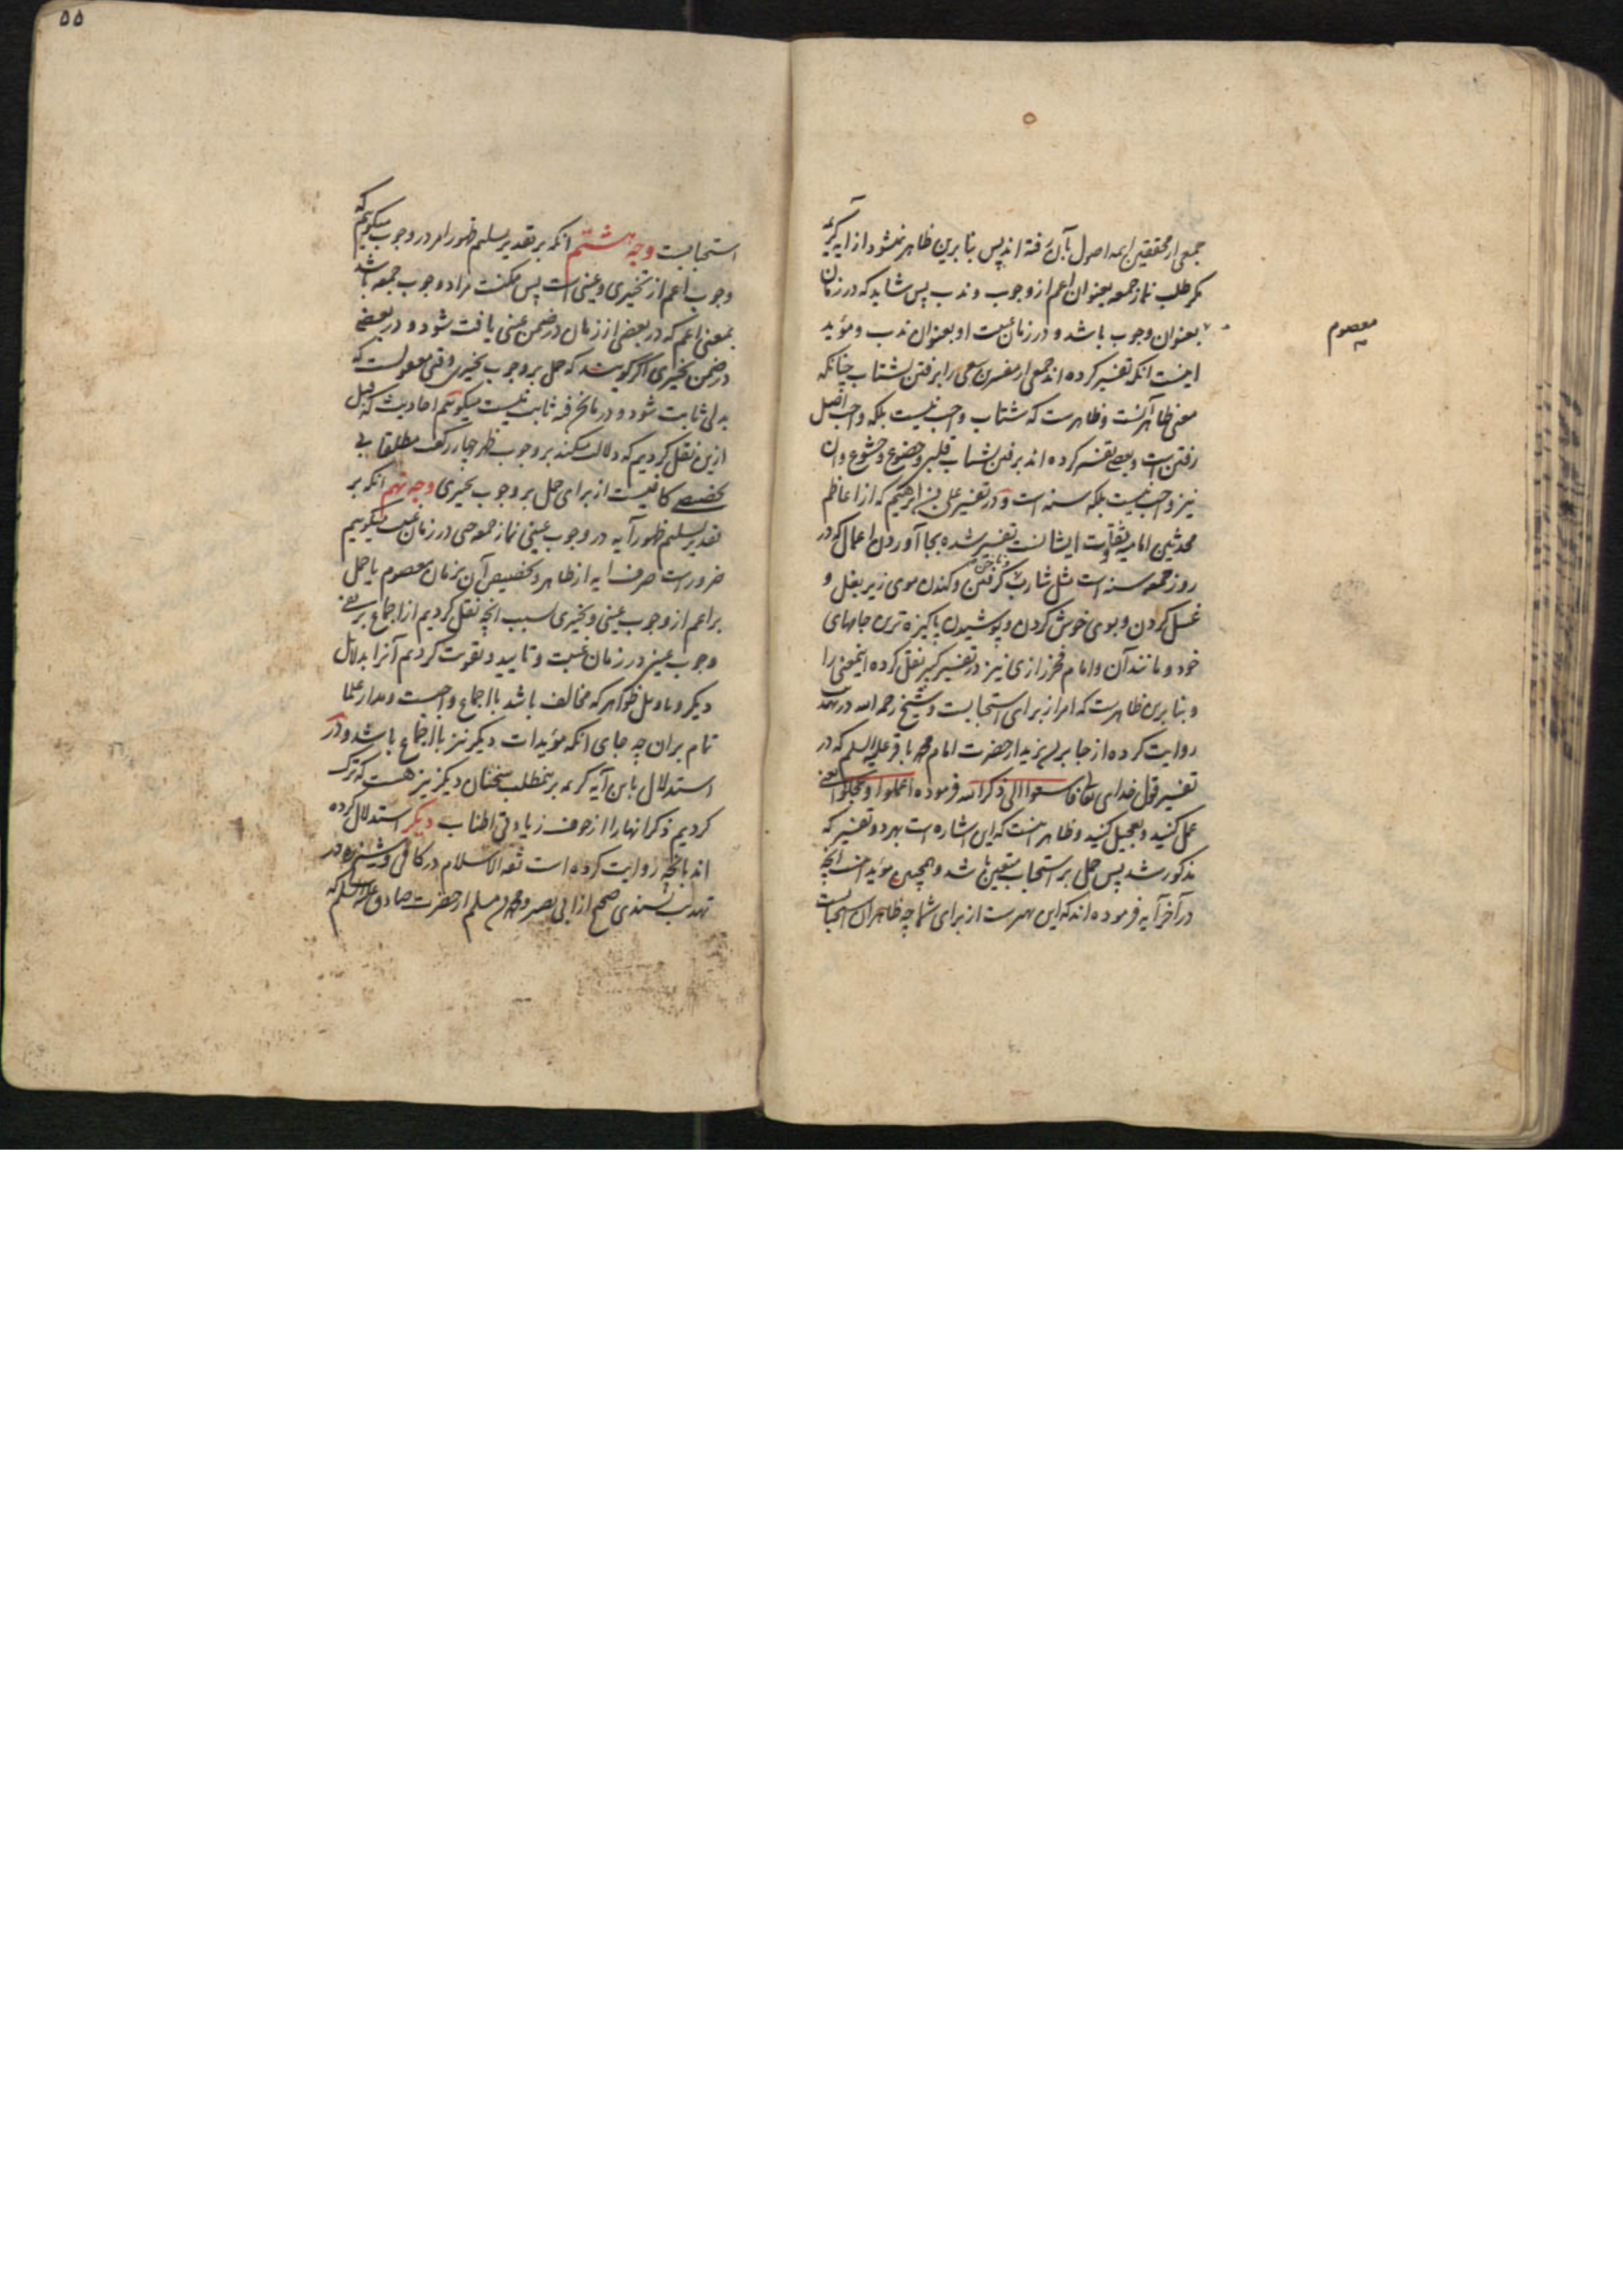 جمعی از محققین ائمه اصول بآن رفته اند پس بنابرین ظاهر نمیشود از آیه کریمه
مکر طلب نماز جمعه بعنوان اعم از وجوب و ندب پس شاید که در زمان
معصوم
بعنوان وجوب باشد و در زمان غیبت او بعنوان ندب و مؤید
اینست انکه تفسیر کرده اند جمعی از مفسرین سعی را برفتن بشتاب چنانکه
معنی ظاهر آنست و ظاهرست که شتاب واجب نیست بلکه واجب اصل
رفتن است و بعضی تفسیر کرده اند برفتن بشتاب قلبی و خضوع و خشوع و ان
نیز واجب نیست بلکه سنت است و در تفسیر علی بن ابرهیم که از اعاظم
محدثین امامیه و ثقات ایشانست تفسیر شده بجا آوردن اعمال که در
روز جمعه سنت است مثل شارب و ناخن گرفتن و کندن موی زیر بغل و
غسل کردن و بوی خوش کردن و پوشیدن پاکیزه ترین جامهای
خود و مانند آن و امام فخر رازی نیز در تفسیر کبیر نقل کرده اینمعنی را
و بنابرین ظاهرست که امر از برای استحبابست و شیخ رحمه الله در تهذیب
روایت کرده از جابر بن یزید از حضرت امام محمد باقر علیه السلم که در
تفسیر قول خدای تعالی فاسعوا الی ذکر الله فرموده اعملوا و عجلوا یعنی
عمل کنید و تعجیل کنید و ظاهر اینست که این اشاره است بهر دو تفسیر که
مذکور شد پس حمل بر استحباب متعین باشد و همچنین مؤید انست انچه
در آخر آیه فرموده اند که این بهترست از برای شما چه ظاهر ان استحبابست
۵۵
استحبابست وجه هشتم انکه بر تقدیر تسلیم ظهور امر در وجوب میکوییم که
وجوب اعم از تخییری و عینی است پس ممکنست مراد وجوب جمعه باشد
بمعنی اعم که در بعضی از زمان در ضمن عینی یافت شود و در بعضی
در ضمن تخییری اکر کویند که حمل بر وجوب تخییری وقتی معقولست که
بدلی ثابت شود و در مانحن فیه ثابت نیست میکوییم احادیث که قبل
ازین نقل کردیم که دلالت میکند بر وجوب ظهر چهار رکعت مطلقا بی
تخصیصی کافیست از برای حمل بر وجوب تخییری وجه نهم انکه بر
تقدیر تسلیم ظهور آیه در وجوب عینی نماز جمعه حتی در زمان غیبت میکوییم
ضرورست صرف ایه از ظاهر و تخصیص آن بزمان معصوم یا حمل
بر اعم از وجوب عینی و تخییری بسبب انچه نقل کردیم از اجماع بر نفی
وجوب عینی در زمان غیبت و تایید و تقویت کردیم آنرا بدلایل
دیکر و تاویل ظواهر که مخالف باشد با اجماع واجبست و مدار علما
تمام بران چه جای انکه مؤیدات دیکر نیز با اجماع باشد و در
استدلال باین آیه کریمه بر مطلب سخنان دیکر نیز هست که ترک
کردیم ذکر انها را از خوف زیادتی اطناب دیکر استدلال کرده
اند بانچه روایت کرده است ثقه الاسلام در کافی و شیخ در
تهذیب بسندی صحیح از ابی بصیر و محمد بن مسلم از حضرت صادق علیه السلم که